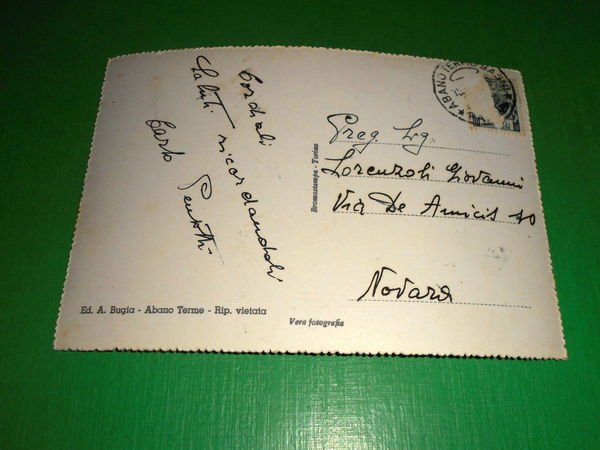 Cordiali
Saluti ricordandoli
Carlo
Preg. Sig.
Lorenzoli Giovanni
Via De Amicis 10
Novara
Bromostampa - Torino
Ed. A. Bugia - Abano Terme - Rip. vietata
Vera fotografia
ABANO TERME